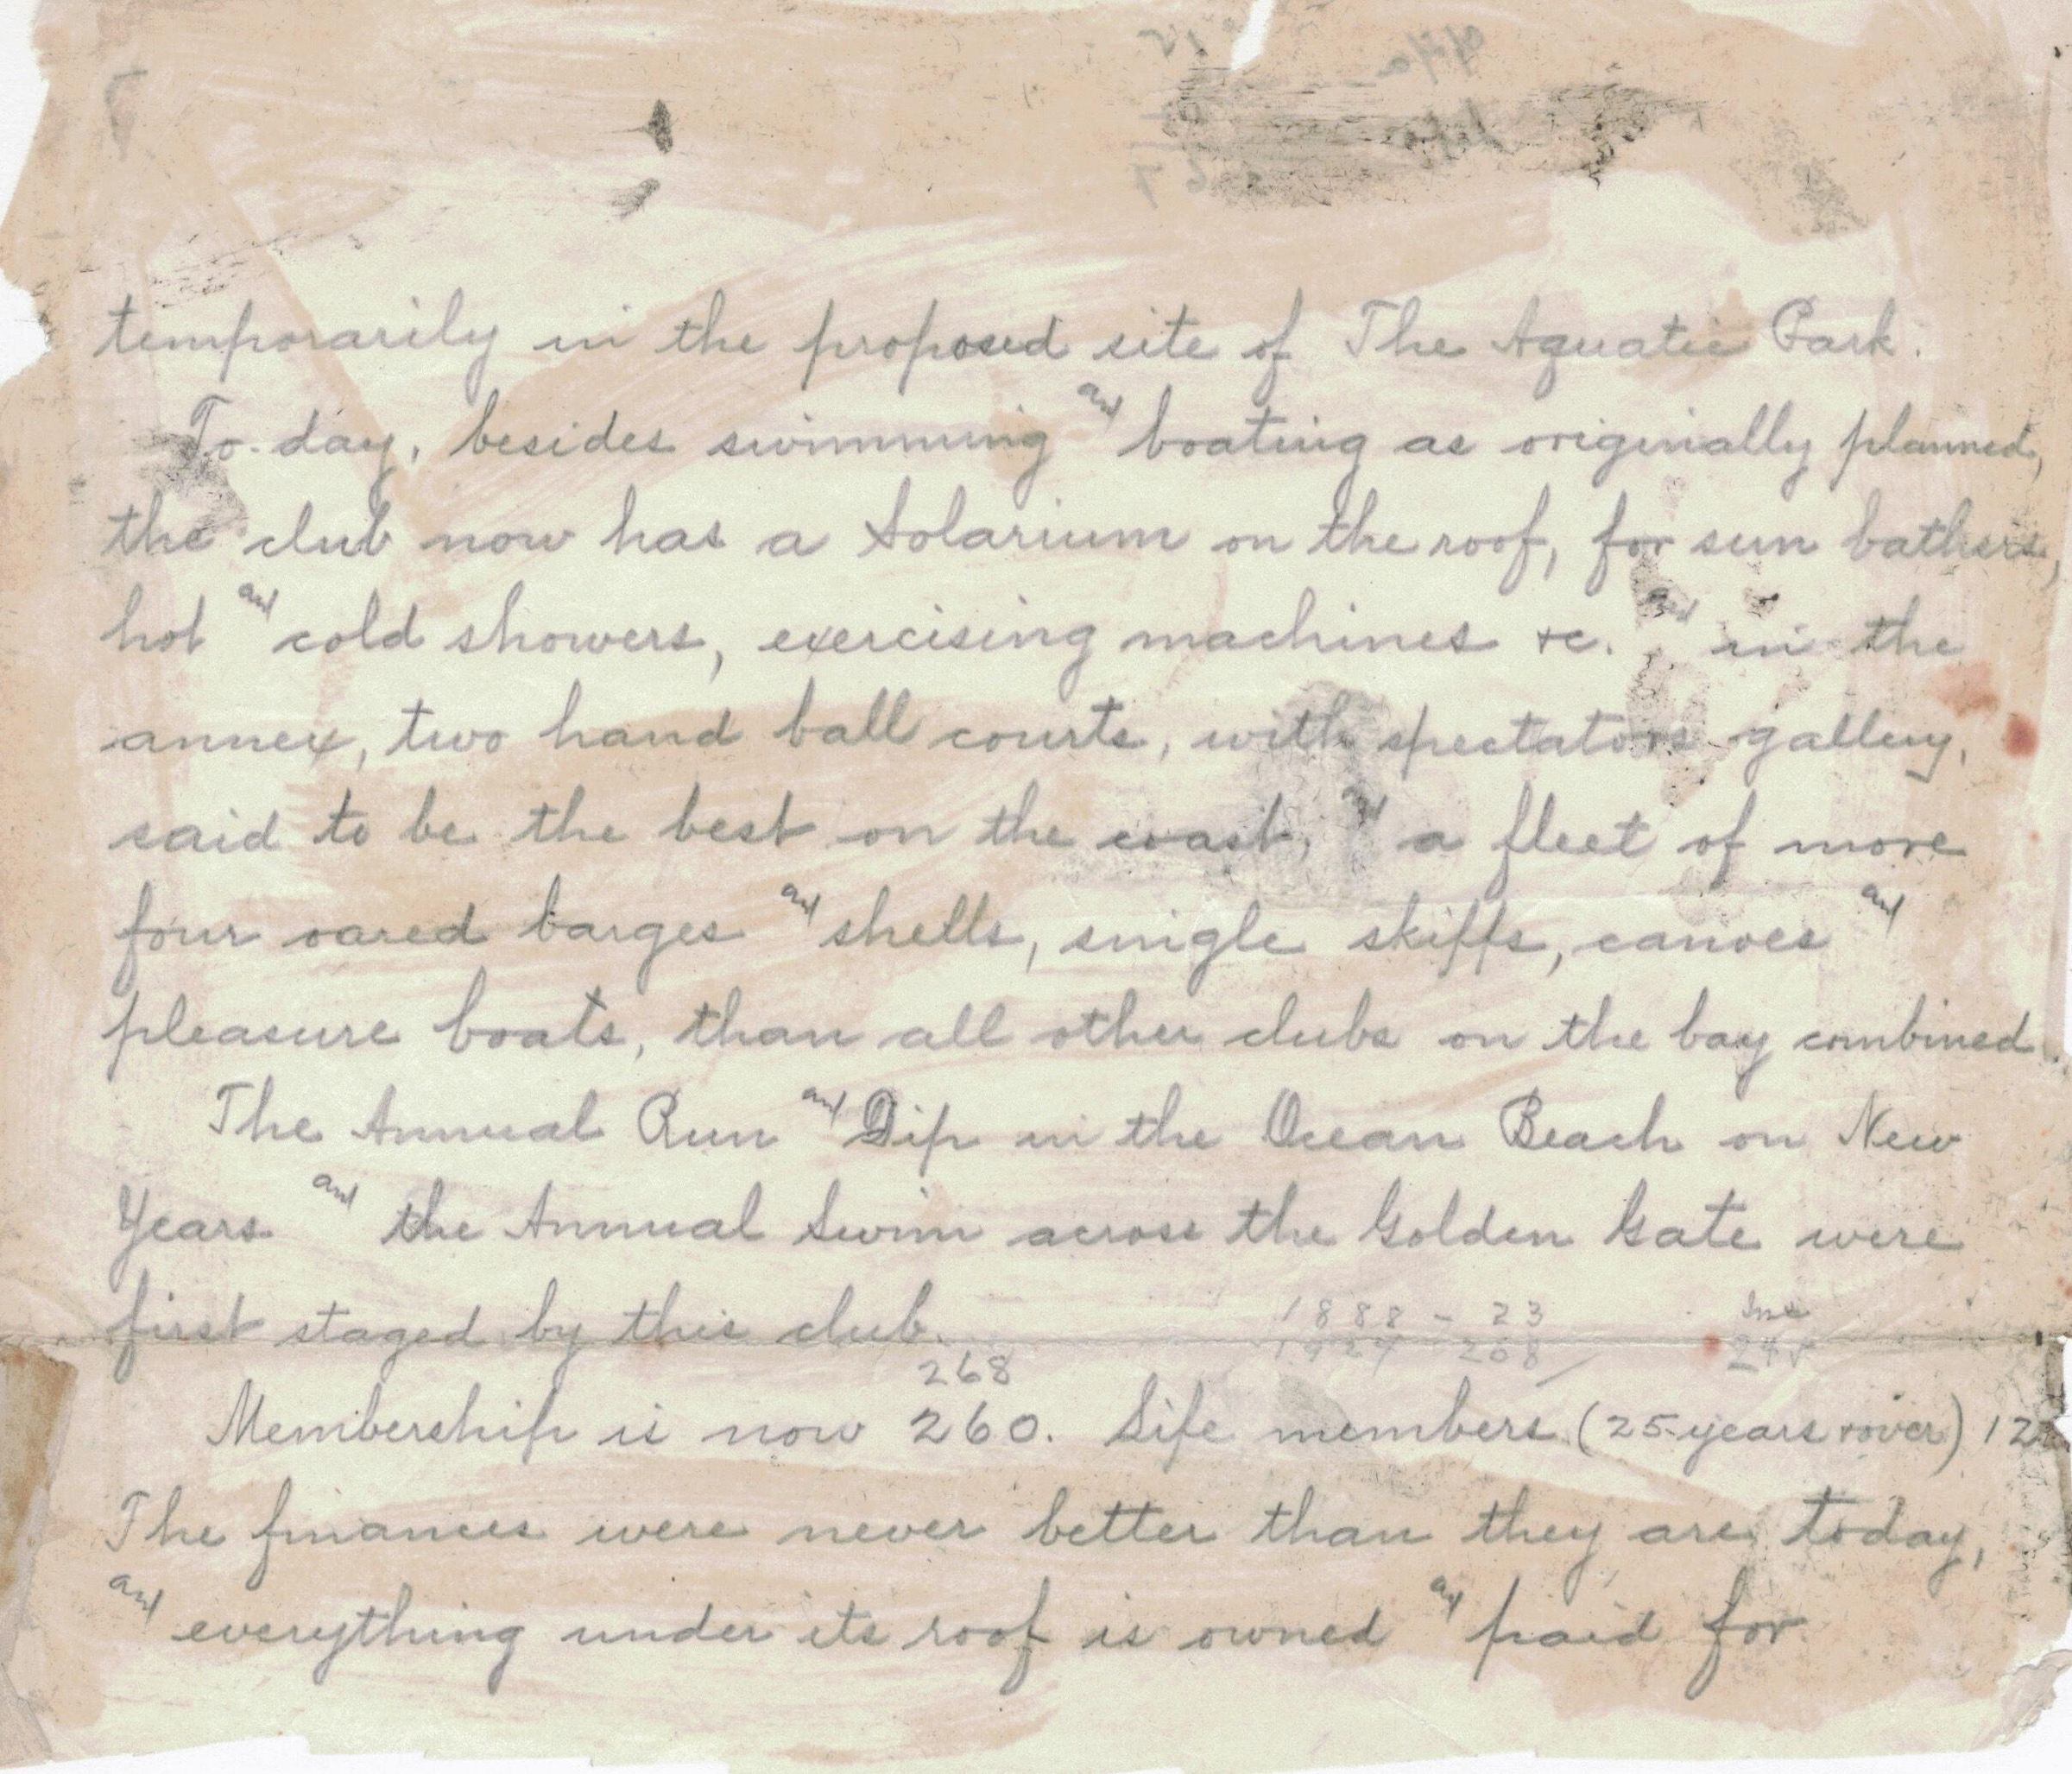 temporarily in the proposed site of The Aquatic Park.
To-day, besides swimming and boating as originally planned,
the club now has a Solarium on the roof, for sun bathers,
hot and cold showers, exercising machines &c. and in the
annex, two hand ball courts, with spectators gallery,
said to be the best on the coast, and a fleet of more
four oared barges and shells, single skiffs, canoes and
pleasure boats, than all other clubs on the bay combined.
The Annual Run and Dip in the Ocean Beach on New
Years and the Annual Swim across the Golden Gate were
first staged by this club.
1888 - 23 Inc
1927 268 245
268
Membership is now 260. Life members (25 years &over) 12
The finances were never better than they are today,
and everything under its roof is owned and paid for